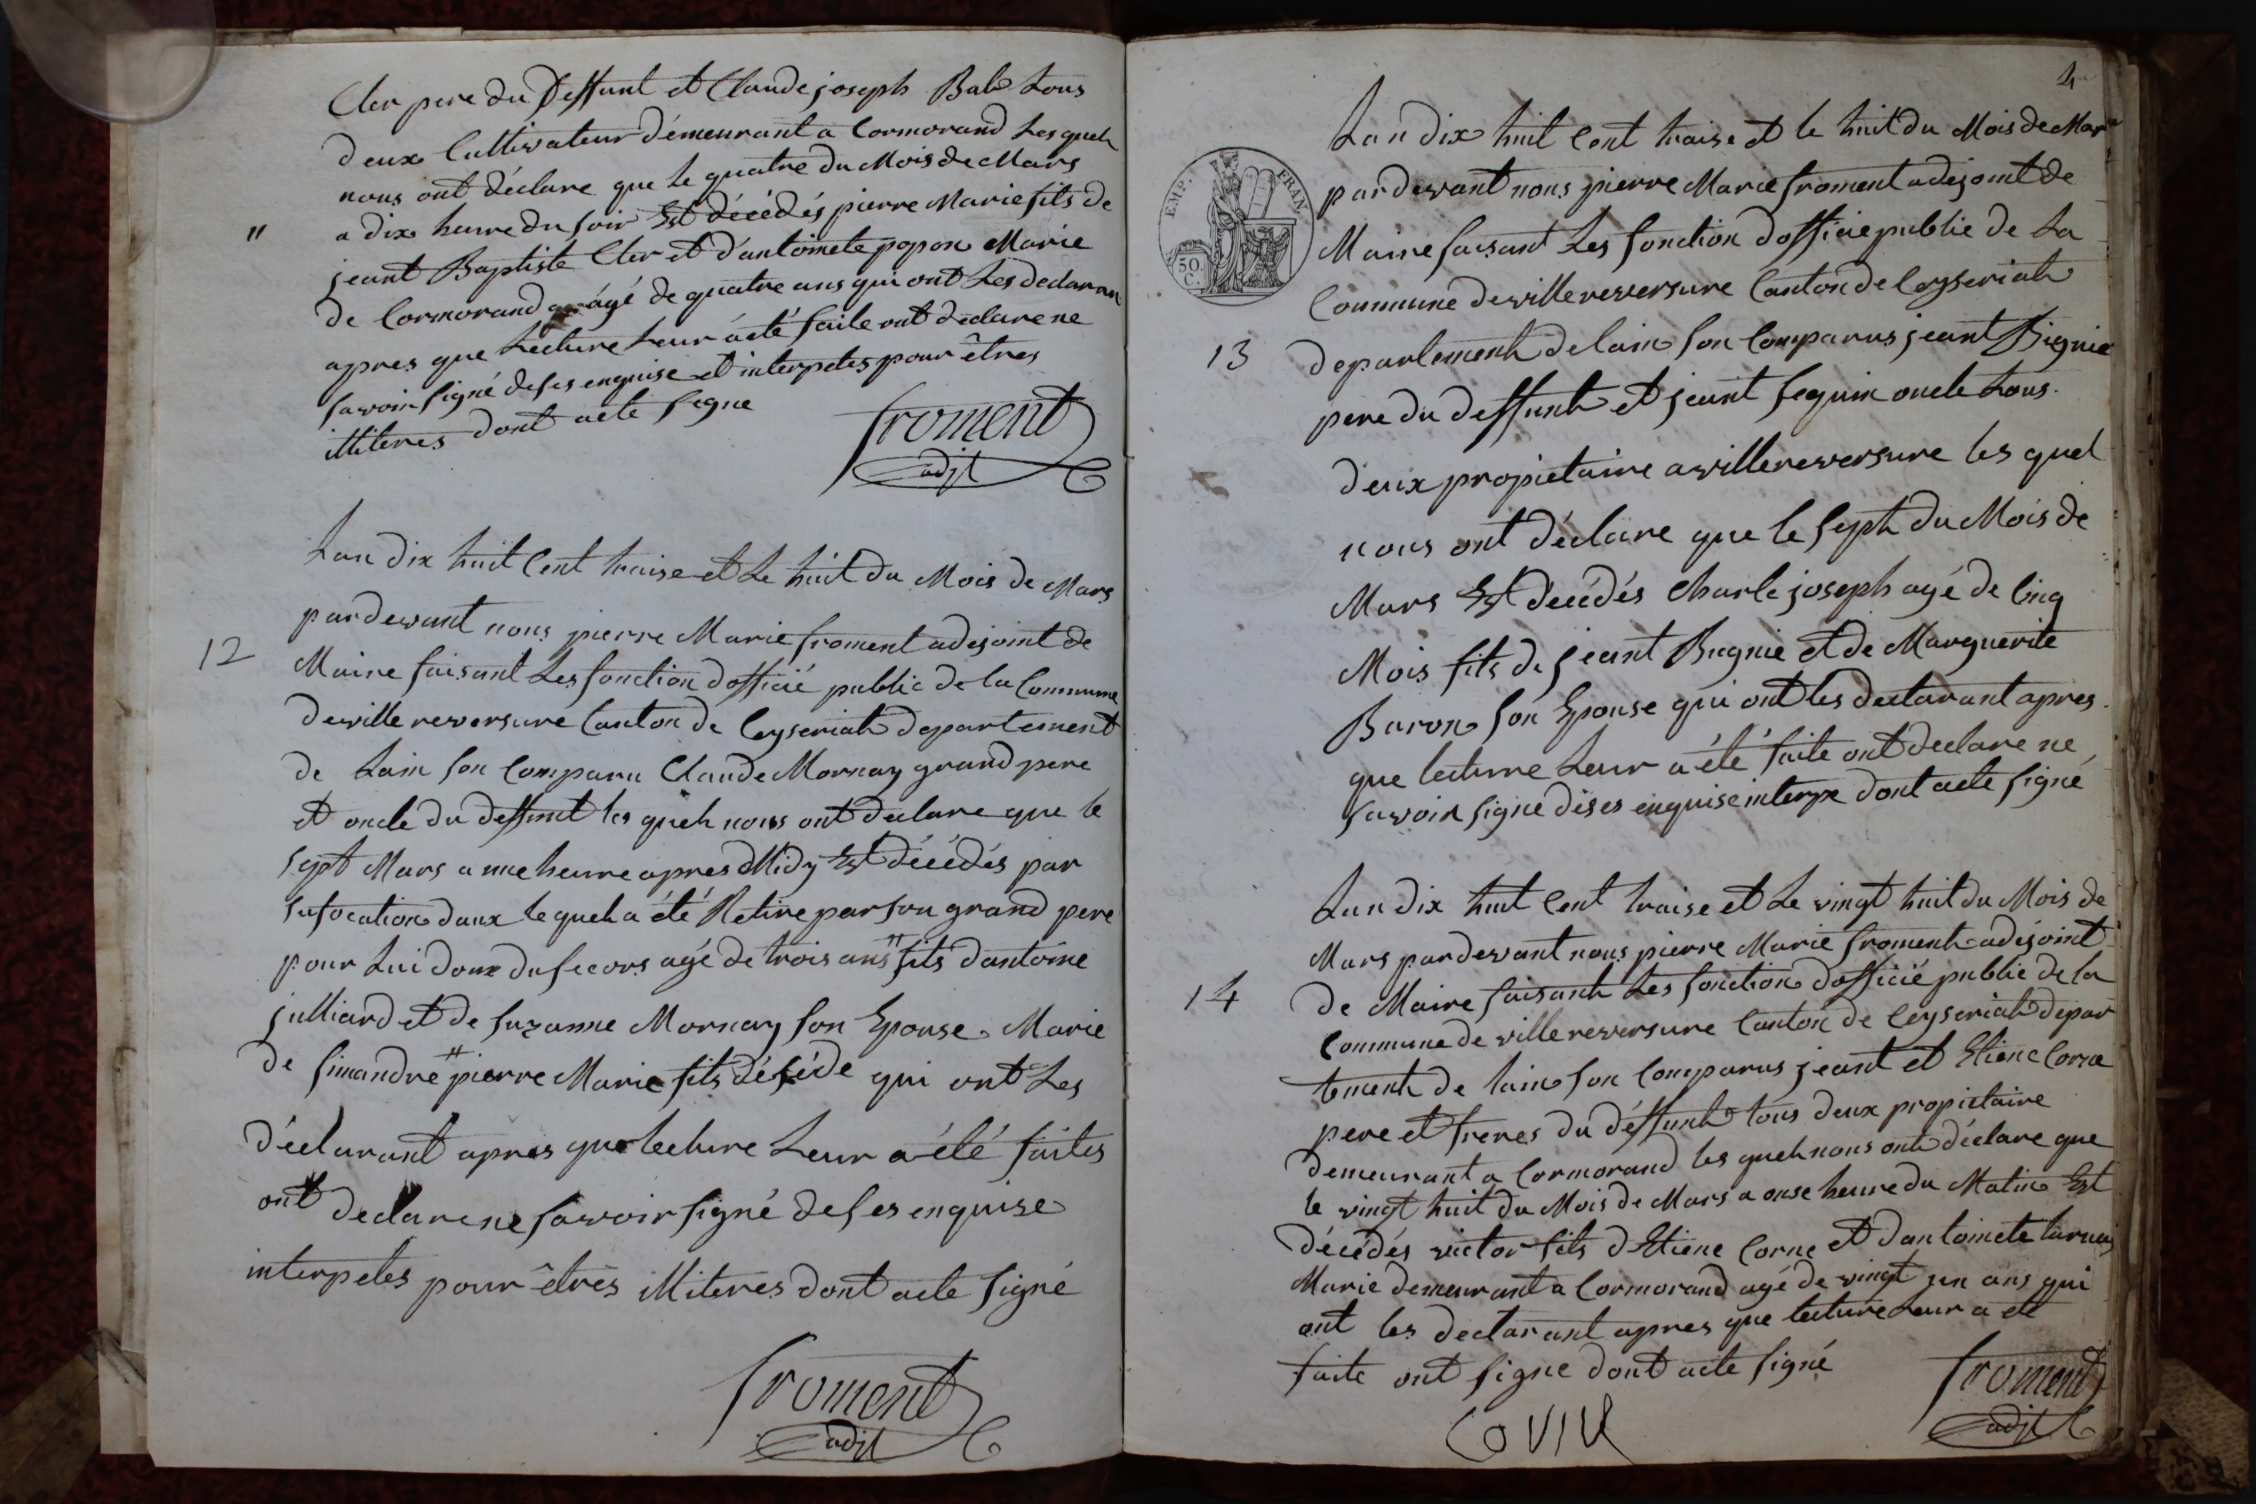 Cler pere du deffunt et Claude joseph Bab tous
deux Cultivateur démeurant a Cormorand Les quels
nous ont déclare que le quatre du Mois de Mars
a dix heure du soir Est décédés pierre Marie fils de
"
jeant Baptiste Cler et d'antoinete popon Marie
de Cormorand agé de quatre ans qui ont Les declaran
apres que Lecture Leur áeté faite ont declare ne
savoir signé de ses enquise et interpetes pour êtres
illiteres dont acte signe
froment
adjt
Lan dix huit Cent traise et Le huit du Mois de Mars
pardevant nous pierre Marie froment adejoint de
12
Maire faisant Les fonction d'officié public de la Commune
de villereversure Canton de Ceyseriah departement
de Lain son Comparu Claude Mornay grand pere
et oncle du deffunt les queh nous ont declare que le
sept Mars a une heure apres Midy Est décédés par
sufocation daux le queh a été Retire par son grand pere
pour Lui doux du secors agé de trois ans " fils dantoine
julliard et de suzanne Mornay son Epouse Marie
de simandre " pierre Marie fils déséde qui ont Les
déclarant apres que lecture Leur a été faites
ont declare ne savoir signé de ses enquise
interpetes pour êtres illiteres dont acte signé
froment
adjt
4
Lan dix huit Cent traise et le huit du Mois de Mars
pardevant nous pierre Marie froment adejoint de
EMP. FRAN.
50 C.
Maire faisant Les fonction d'officie public de La
Commune de villereversure Canton de Ceyseriah
13
departementh de lain son Comparus jeant Bignie
pere du deffunh et jeant seguin oncle tous
deux propietaire a villereversure les quel
nous ont déclare que le septh du Mois de
Mars Est décédés Charle joseph agé de Cinq
Mois fils de jeant Bignie et de Marguerite
Baron son Epouse qui ont les declarant apres
que lecture Leur a été faite ont declare ne
savoir signe dises enquise interpe dont acte signé
Lan dix huit Cent traise et Le vingt huit du Mois de
Mars pardevant nous pierre Marie fromenh adejoint
14
de Maire faisanh Les fonction d'officié public de la
Commune de villereversure Canton de Ceyseriah depar
tementh de lain son Comparus jeant et Etiene Corne
pere et freres du déffunh tous deux propietaire
demeurant a Cormorand les queh nous onh déclare que
le vingt huit du Mois de Mars a onse heure du Matin Est
décédés victor fils d'Etiene Corne et dantoinete
Marie demeurant a Cormorand agé de vingt un ans qui
ont les declarant apres que lecture Leur a ete
faite ont signe dont acte signé
froment
adjt